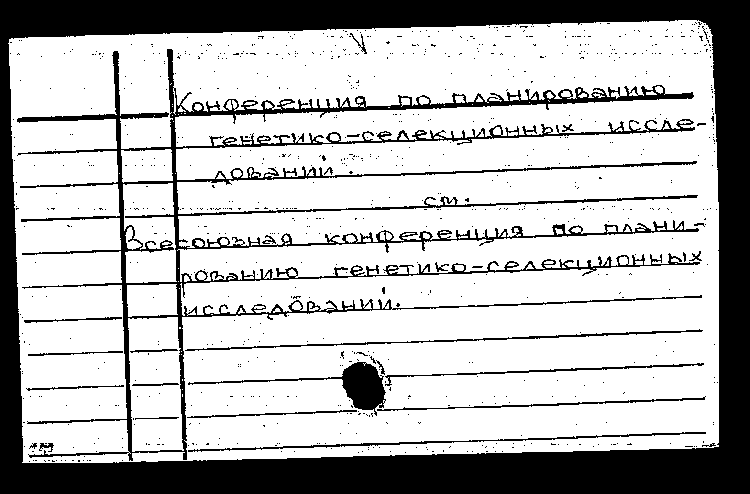 Конференция по планированию
генетико-селекционных иссле-
дований.
см.
Всесоюзная конференция по плани-
рованию генетико-селекционных
исследований.